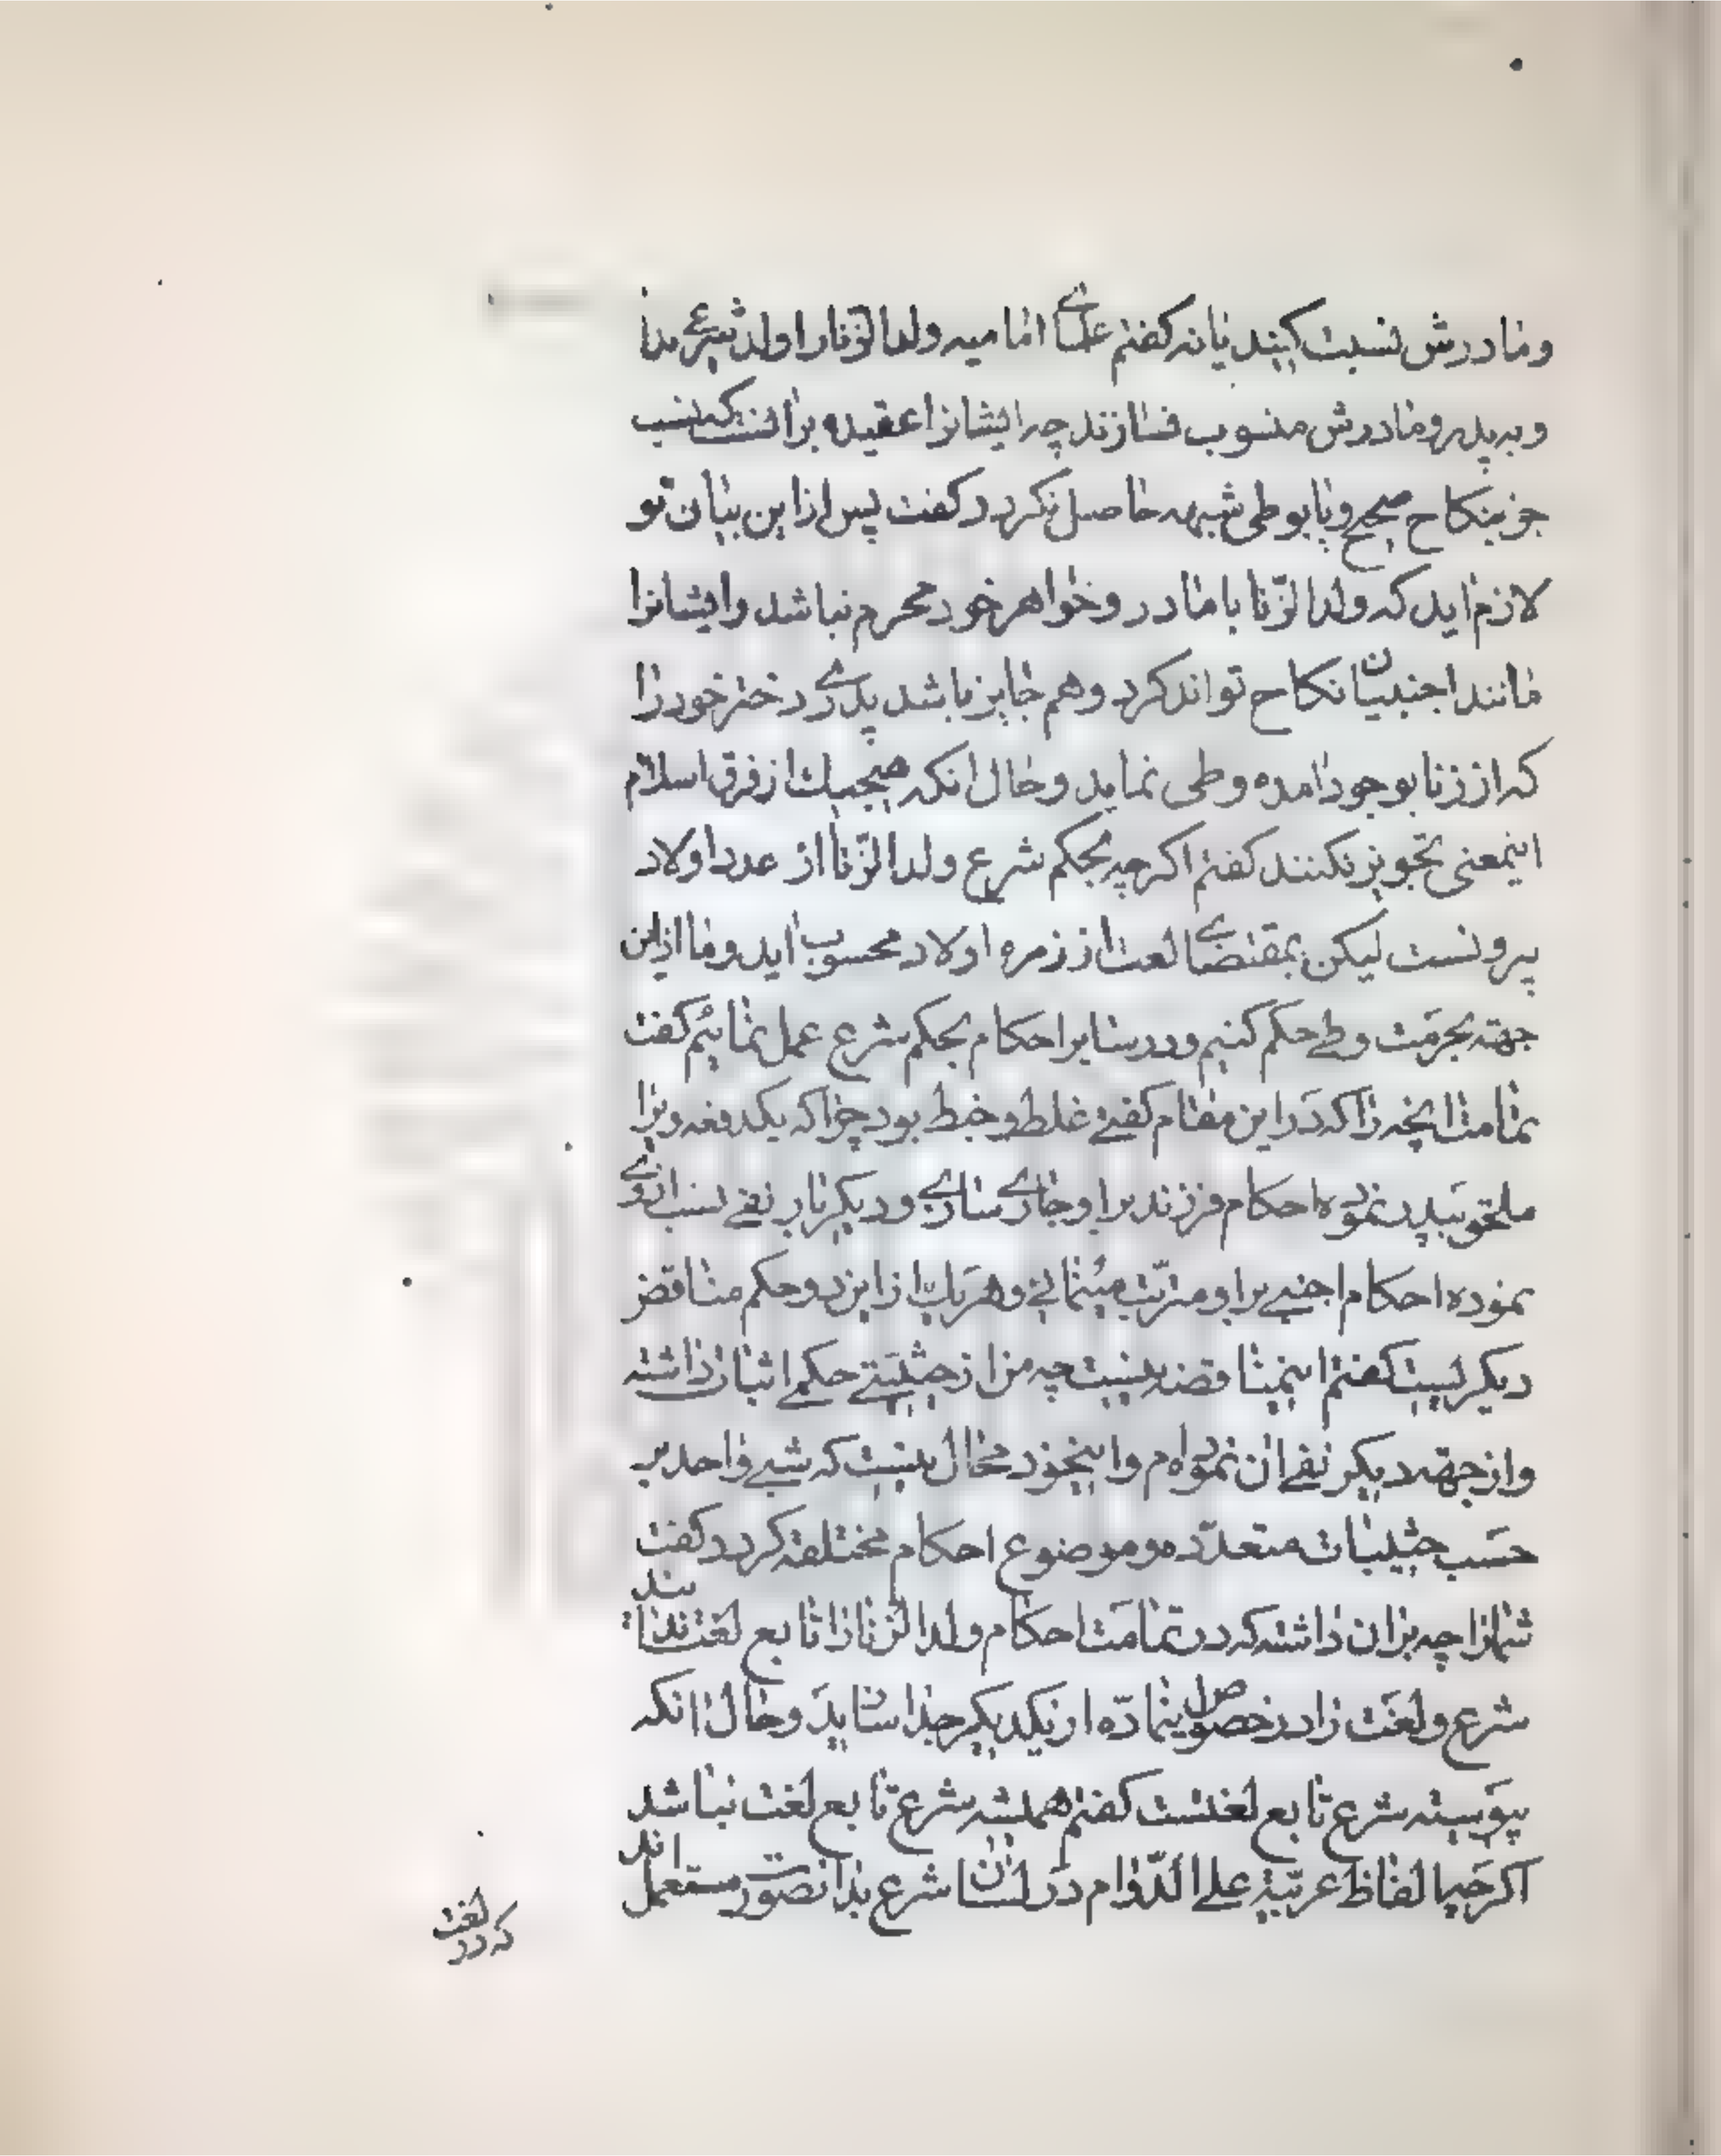 و مادرش نسبت کنند یا نه کفتم علمای امامیه ولد الزنا را ولد شرعی ندا
و به پدر و مادرش منسوب نسازند چه ایشانرا عقیده بر انست که نسب
جز بنکاح صحیح و یا بوطی شبهه حاصل نکردد کفت پس از این بیان تو
لازم اید که ولد الزّنا با مادر و خواهر خود محرم نباشد و ایشانرا
مانند اجنبیان نکاح تواند کرد و هم جایز باشد پدری دختر خود را
که از زنا بوجود امده وطی نماید و حال انکه هیچیک از فرق اسلام
اینمعنی تجویز نکنند کفتم اکرچه بحکم شرع ولد الزّنا از عدد اولاد
بیرونست لیکن بمقتضای لغت از زمره اولاد محسوب اید و ما از این
جهته بحرمت وطی حکم کنیم و در سایر احکام بحکم شرع عمل نمائیم کفت
تمامت انچه را که در این مقام کفتی غلط و خبط بود چرا که یکدفعه ویرا
ملحق بپدر نموده احکام فرزند بر او جاری ساری و دیکر بار نفی نسب از وی
نموده احکام اجنبی بر او مترتّب مینمائی و هر یک از این دو حکم مناقض
دیکریست کفتم اینمناقضه نیست چه من از حیثیتی حکمی اثبات داشته
و از جهته دیکر نفی ان نموده‌ام و اینخود محال نیست که شیی واحد بر
حسب حیثیات متعدّده موضوع احکام مختلفه کردد کفت
شمارا چه بران داشته که در تمامت احکام ولد الزنا را تابع لغت ندانید
شرع و لغت را در خصوص اینمادّه از یکدیکر جدا سازید و حال انکه
پیوسته شرع تابع لغتست کفتم همیشه شرع تابع لغت نباشد
اکرچه الفاظ عربیّة علی الدّوام در لسان شرع بدانصورت مستعمل اند
که در لغت